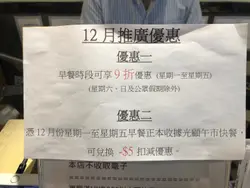 12月推廣優惠
優惠一
早餐時段可享 9折優惠 (星期一至星期五)
(星期六、日及公眾假期除外)
優惠二
憑12月份星期一至星期五早餐正本收據光顧午市快餐,
可兌換 -$5 扣減優惠。
本店不收取電子